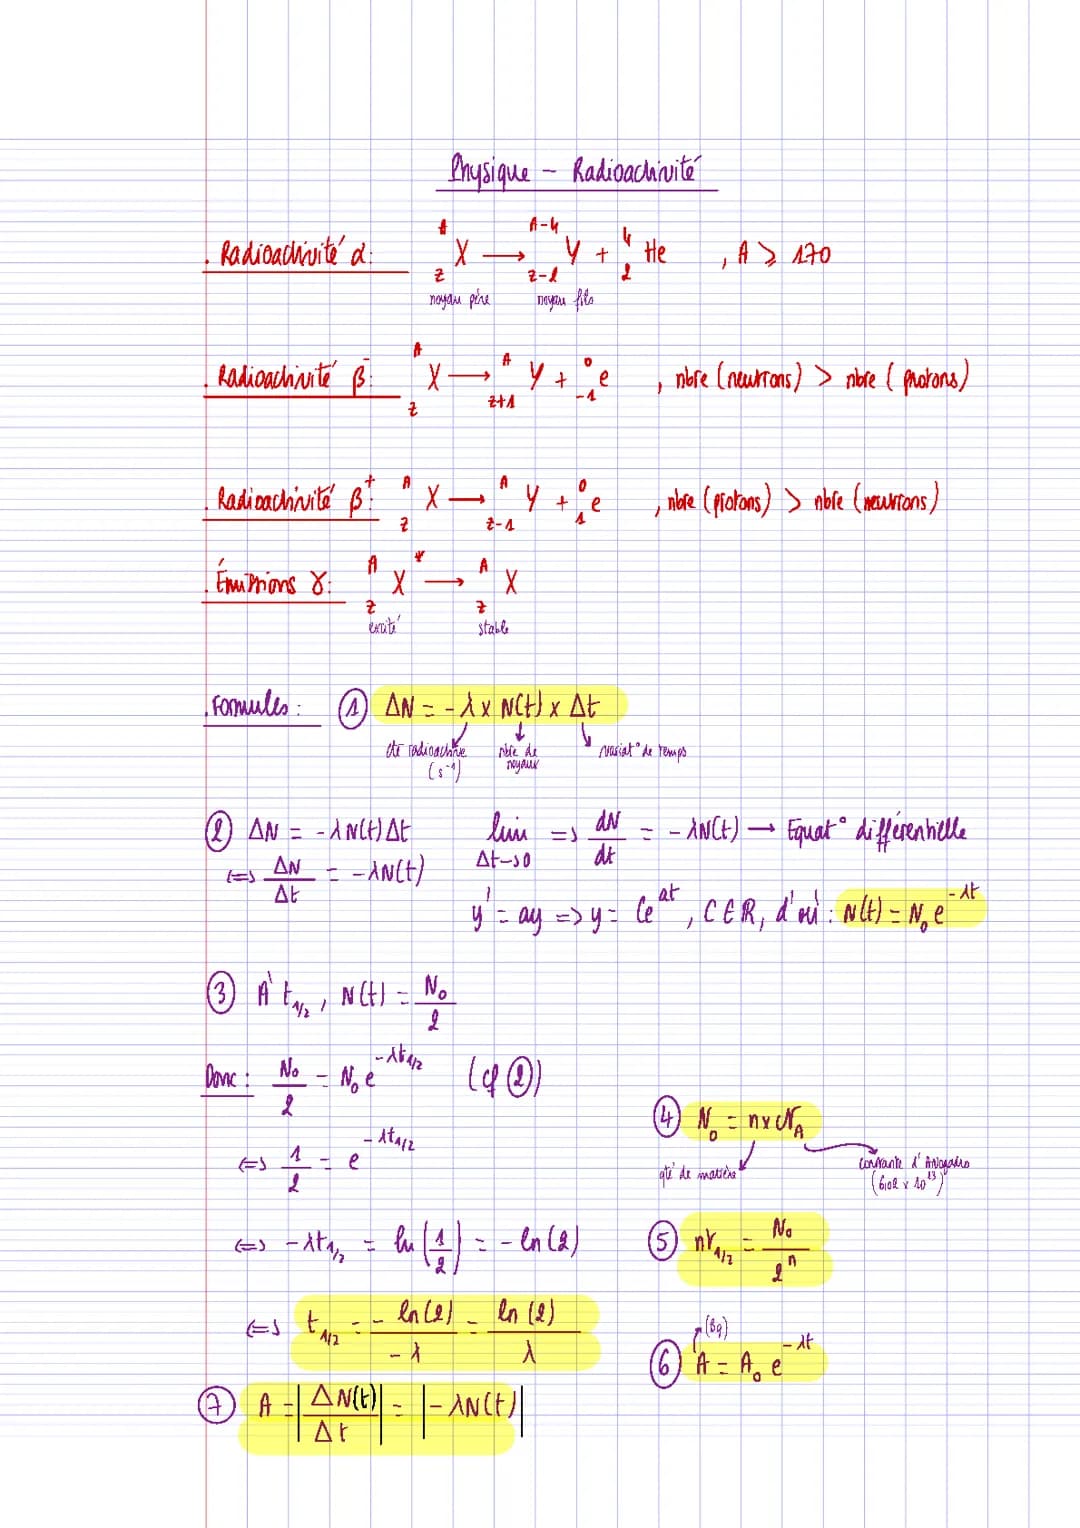 Physique - Radioactivité
. Radioactivité α: ᴬ_Z X → ᴬ⁻⁴_Z-2 Y + ⁴₂ He , A ⩾ 170
noyau père noyau fils
. Radioactivité β⁻: ᴬ_Z X → ᴬ_Z+1 Y + ⁰₋₁ e , nbre (neutrons) > nbre (protons)
. Radioactivité β⁺: ᴬ_Z X → ᴬ_Z-1 Y + ⁰₁ e , nbre (protons) > nbre (neutrons)
. Émissions γ: ᴬ_Z X* → ᴬ_Z X
excité stable
. Formules : ① ΔN = -λ x N(t) x Δt
cte radioactive (s⁻¹) nbre de noyaux variat° de temps
② ΔN = -λN(t)Δt lim Δt→0 => dN/dt = -λN(t) → Equat° différentielle
<=> ΔN/Δt = -λN(t)
y' = ay => y = Ce^at, C ∈ ℝ, d'où : N(t) = N₀ e^-λt
③ À t₁/₂, N(t) = N₀/2
Donc : N₀/2 = N₀ e^-λt₁/₂ (cf ②)
<=> 1/2 = e^-λt₁/₂
<=> -λt₁/₂ = ln(1/2) = -ln(2)
<=> t₁/₂ = -ln(2)/-λ = ln(2)/λ
④ N₀ = n x N_A
qté de matière constante d'Avogadro (6,02 x 10²³)
⑤ nt₁/₂ = N₀/2ⁿ
⑥ A = A₀ e^-λt
(Bq)
⑦ A = |ΔN(t)/Δt| = |-λN(t)|